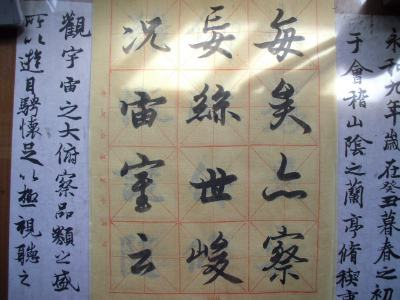 永和九年歲在癸丑暮春之初
于會稽山陰之蘭亭脩稧事
每矣亦察
妄絲世峻
況宙室云
觀宇宙之大俯察品類之盛
所以遊目騁懷足以極視聽之